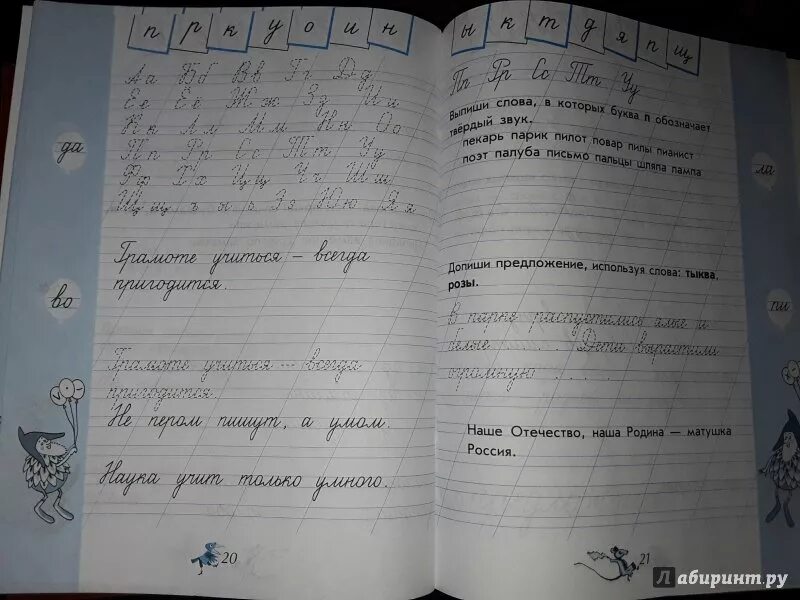 п р к у о и н
Аа Бб Вв Гг Дд
Ее Ёё Жж Зз Ии
Кк Лл Мм Нн Оо
Пп Рр Сс Тт Уу
Фф Хх Цц Чч Шш
Щщ ъ ы ь Ээ Юю Яя
Грамоте учиться – всегда
пригодится.
Грамоте учиться – всегда
пригодится.
Не пером пишут, а умом.
Наука учит только умного.
да
во
20
ы к т д я п щ
Пп Рр Сс Тт Уу
Выпиши слова, в которых буква п обозначает
твёрдый звук.
пекарь парик пилот повар пилы пианист
поэт палуба письмо пальцы шляпа лампа
Допиши предложение, используя слова: тыква,
розы.
В парке распустились алые и
белые . . . . Дети вырастили
огромную . . . .
Наше Отечество, наша Родина — матушка
Россия.
ла
пи
21
Лабиринт.ру